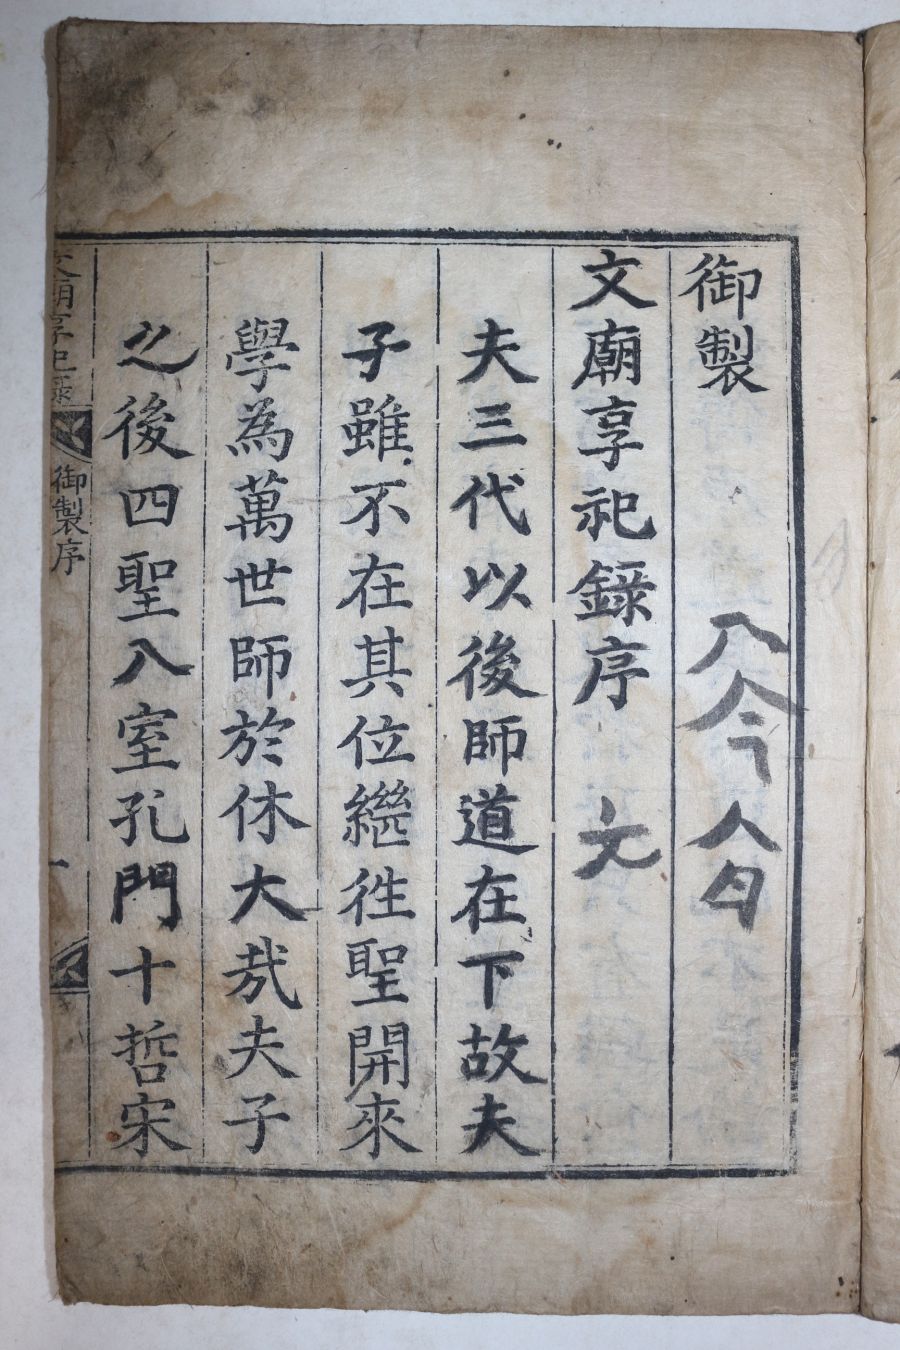 御製
文廟享祀錄序
夫三代以後師道在下故夫
子雖不在其位繼徃聖開來
學為萬世師於休大㦲夫子
之後四聖八室孔門十哲宋
文廟享祀錄
御製序
一